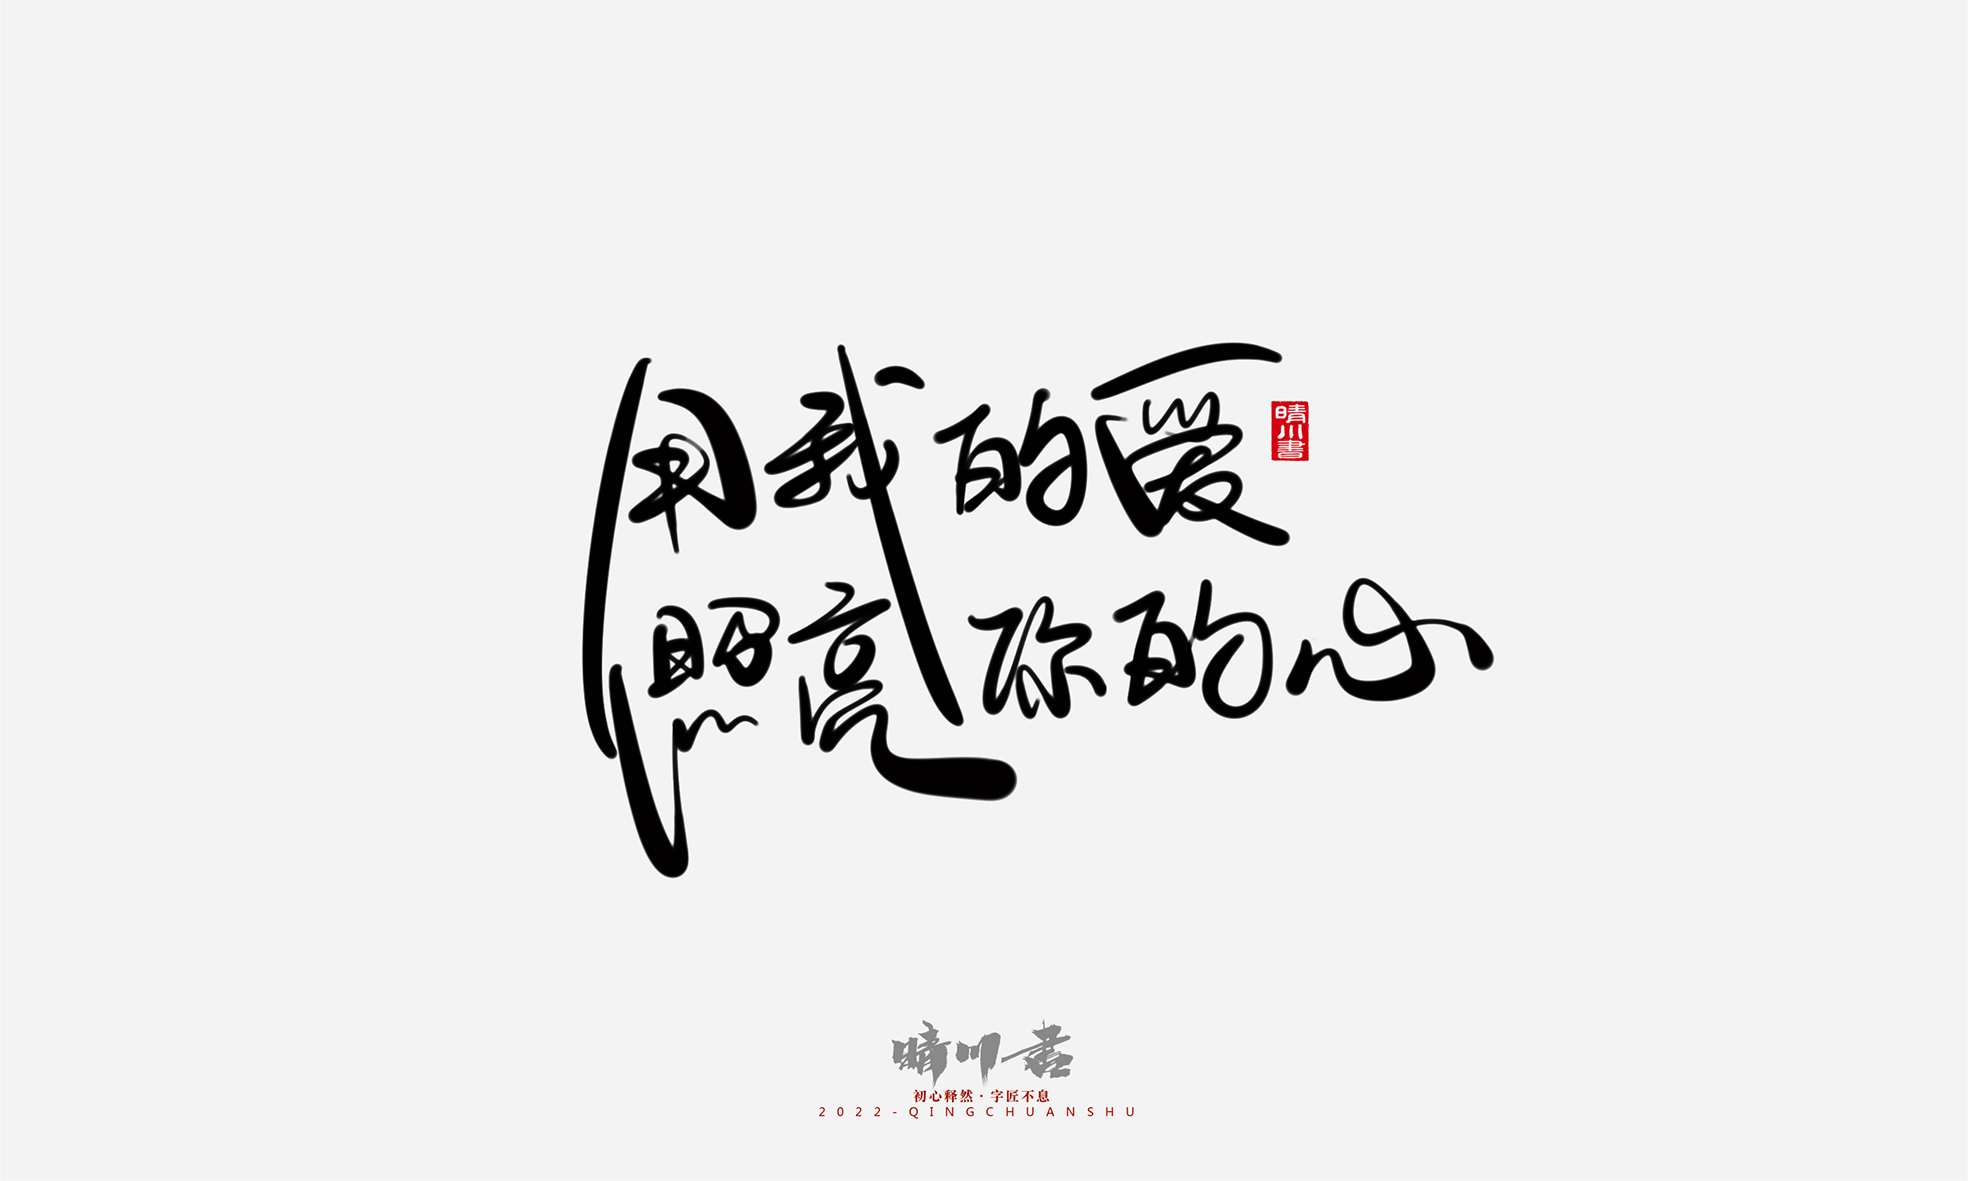 用我的爱
晴川書
照亮你的心
晴川書
初心释然·字匠不息
2022-QINGCHUANSHU